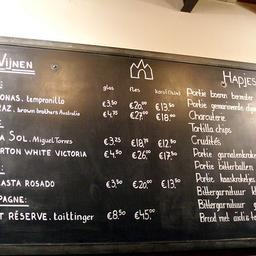 Wijnen
Hapjes
glas fles karaf (½ltr)
ONAS. tempranillo €3.50 €20.00 €13.50
RAZ. brown brothers Australia €4.75 €27.00 €18.00
A SOL. Miguel Torres €3.25 €18.75 €12.50
RTON WHITE VICTORIA €4.50 €26.00 €17.50
ASTA ROSADO €3.50 €20.00 €13.50
PAGNE:
T RÉSERVE. taittinger €8.50 €45.00
Portie boeren
Portie gemarineerde
Charcuterie
Tortilla chips
Crudités
Portie garnalenkroke
Portie bitterballen
Portie kaaskroketjes
Bittergarnituur
Bittergarnituur
Bittergarnituur
Brood met aïoli &